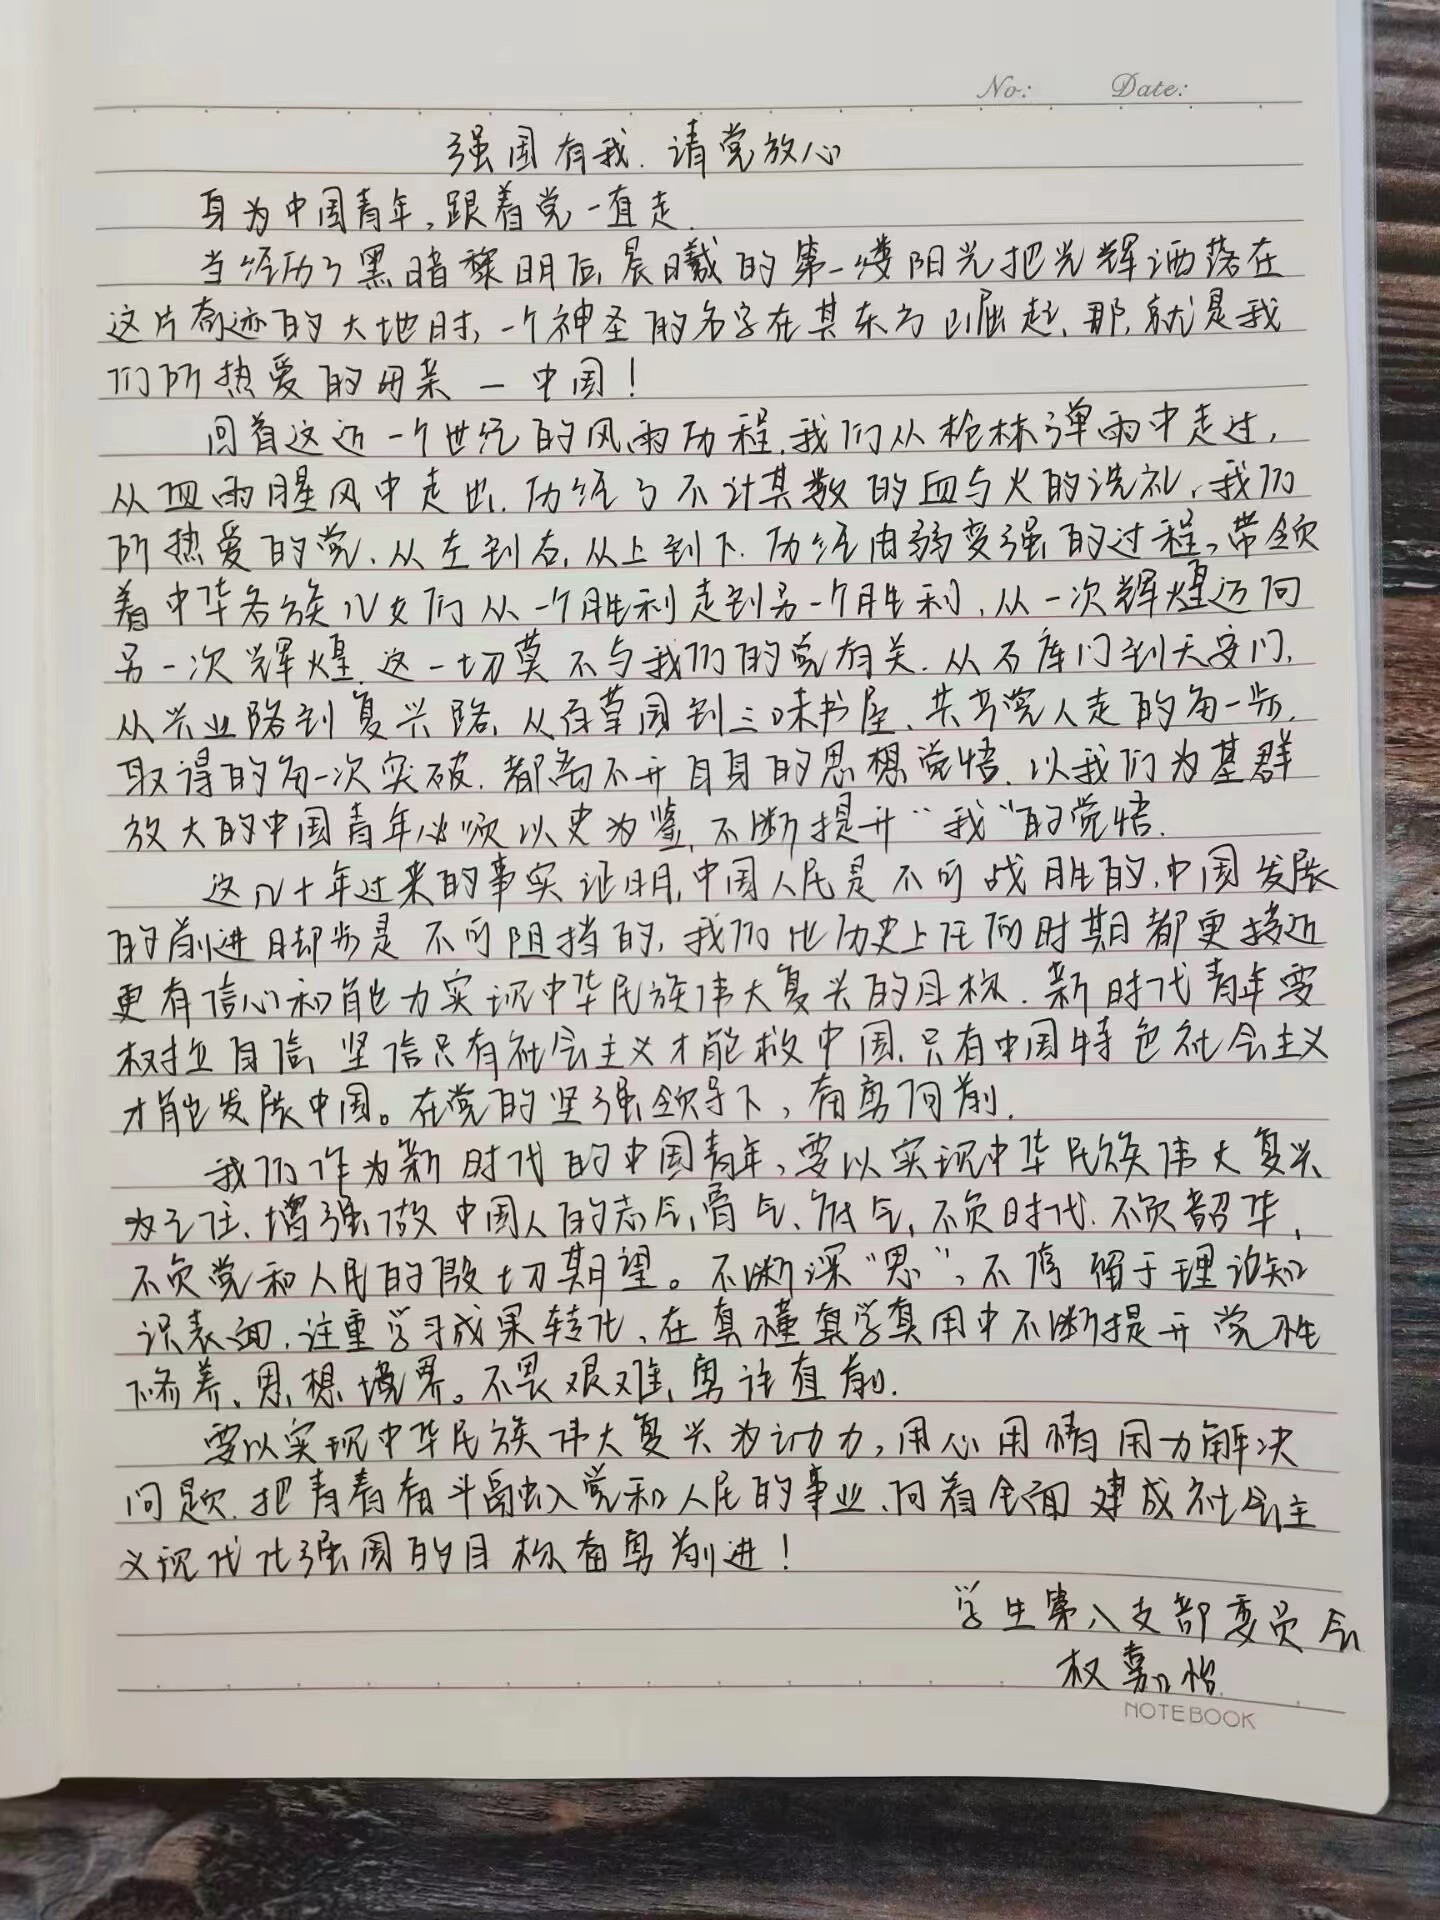 No: Date:
强国有我.请党放心
身为中国青年,跟着党一直走.
当经历了黑暗黎明后,晨曦的第一缕阳光把光辉洒落在
这片奇迹的大地时,一个神圣的名字在其东方崛起,那,就是我
们所热爱的母亲—中国!
回首这近一个世纪的风雨历程,我们从枪林弹雨中走过,
从血雨腥风中走出.历经了不计其数的血与火的洗礼,我们
所热爱的党.从左到右,从上到下.历经由弱变强的过程,带领
着中华各族儿女们从一个胜利走到另一个胜利,从一次辉煌迈向
另一次辉煌.这一切莫不与我们的党有关.从石库门到天安门,
从兴业路到复兴路,从百草园到三味书屋、共产党人走的每一步,
取得的每一次突破.都离不开自身的思想觉悟.以我们为基群
放大的中国青年必须以史为鉴,不断提升“我”的觉悟.
这几十年过来的事实证明,中国人民是不可战胜的,中国发展
的前进脚步是不可阻挡的,我们比历史上任何时期都更接近
更有信心和能力实现中华民族伟大复兴的目标.新时代青年要
树立自信,坚信只有社会主义才能救中国,只有中国特色社会主义
才能发展中国。在党的坚强领导下,奋勇向前.
我们作为新时代的中国青年,要以实现中华民族伟大复兴
为己任.增强做中国人的志气,骨气、底气,不负时代.不负韶华,
不负党和人民的殷切期望。不断深“思”,不停留于理论知
识表面,注重学习成果转化、在真懂真学真用中不断提升党性
修养、思想境界。不畏艰难,勇往直前.
要以实现中华民族伟大复兴为动力,用心用情用力解决
问题.把青春奋斗融入党和人民的事业,向着全面建成社会主
义现代化强国的目标奋勇前进!
学生第八支部委员会
权嘉怡
NOTEBOOK